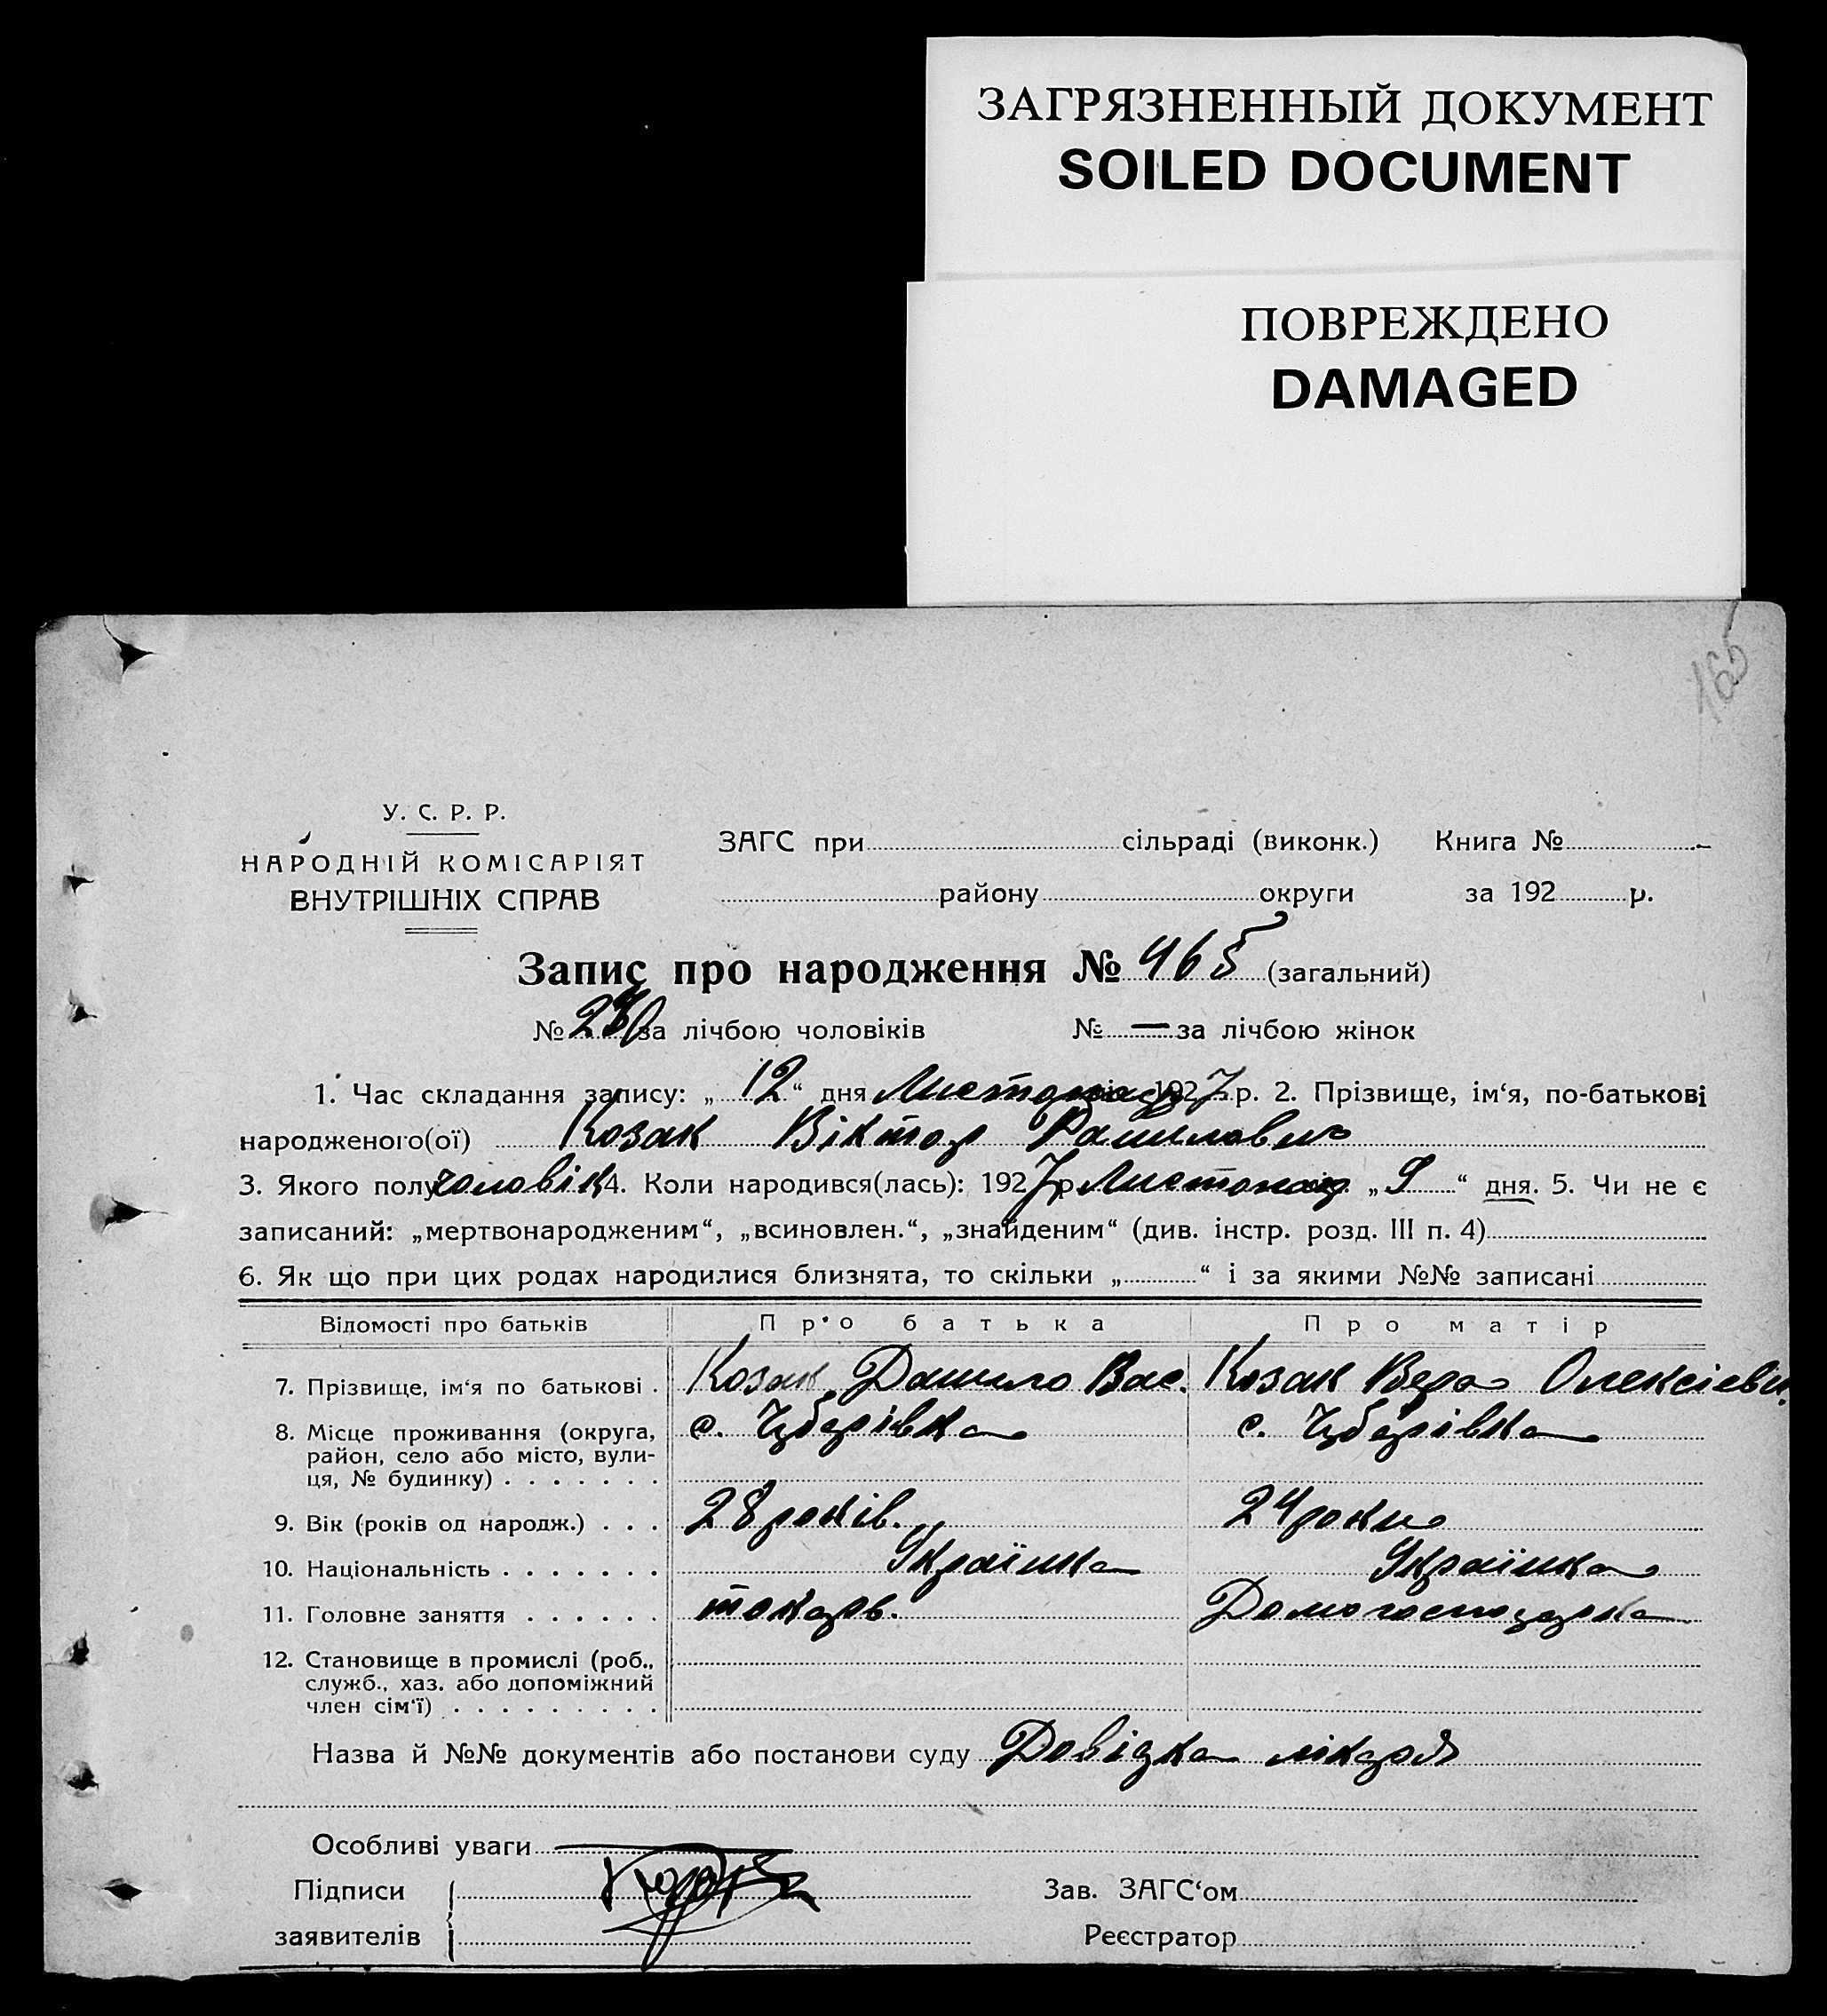 ЗАГРЯЗНЕННЫЙ ДОКУМЕНТ
SOILED DOCUMENT
ПОВРЕЖДЕНО
DAMAGED
165
У. С. Р. Р.
НАРОДНІЙ КОМІСАРІЯТ
ВНУТРІШНІХ СПРАВ
ЗАГС при сільраді (виконк.) Книга №
району округи за 192 р.
Запис про народження № 465 (загальний)
№ за лічбою чоловіків № — за лічбою жінок
1. Час складання запису: „ 12 “ дня Листопада 1927 р. 2. Прізвище, ім‘я, по-батькові
народженого(ої) Козак Віктор Данилович
3. Якого полу чоловік 4. Коли народився(лась): 1927 р. Листопад „ 9 “ дня. 5. Чи не є
записаний: „мертвонародженим“, „всиновлен.“, „знайденим“ (див. інстр. розд. III п. 4)
6. Як що при цих родах народилися близнята, то скільки „ “ і за якими №№ записані
Відомості про батьків Про батька Про матір
7. Прізвище, ім‘я по батькові . Козак Данило Вас. Козак Вера Олексієвн.
8. Місце проживання (округа, с. Чубарівка с. Чубарівка
район, село або місто, вули-
ця, № будинку) . . . . . . .
9. Вік (років од народж.) . . . 28 років. 24 роки
10. Національність . . . . . . . Українка Українка
11. Головне заняття . . . . . . токарь. Домогосподарка
12. Становище в промислі (роб.,
служб., хаз. або допоміжний
член сім‘ї) . . . . . . . . .
Назва й №№ документів або постанови суду Довідка лікаря
Особливі уваги —
Підписи Зав. ЗАГС‘ом
заявителів Реєстратор